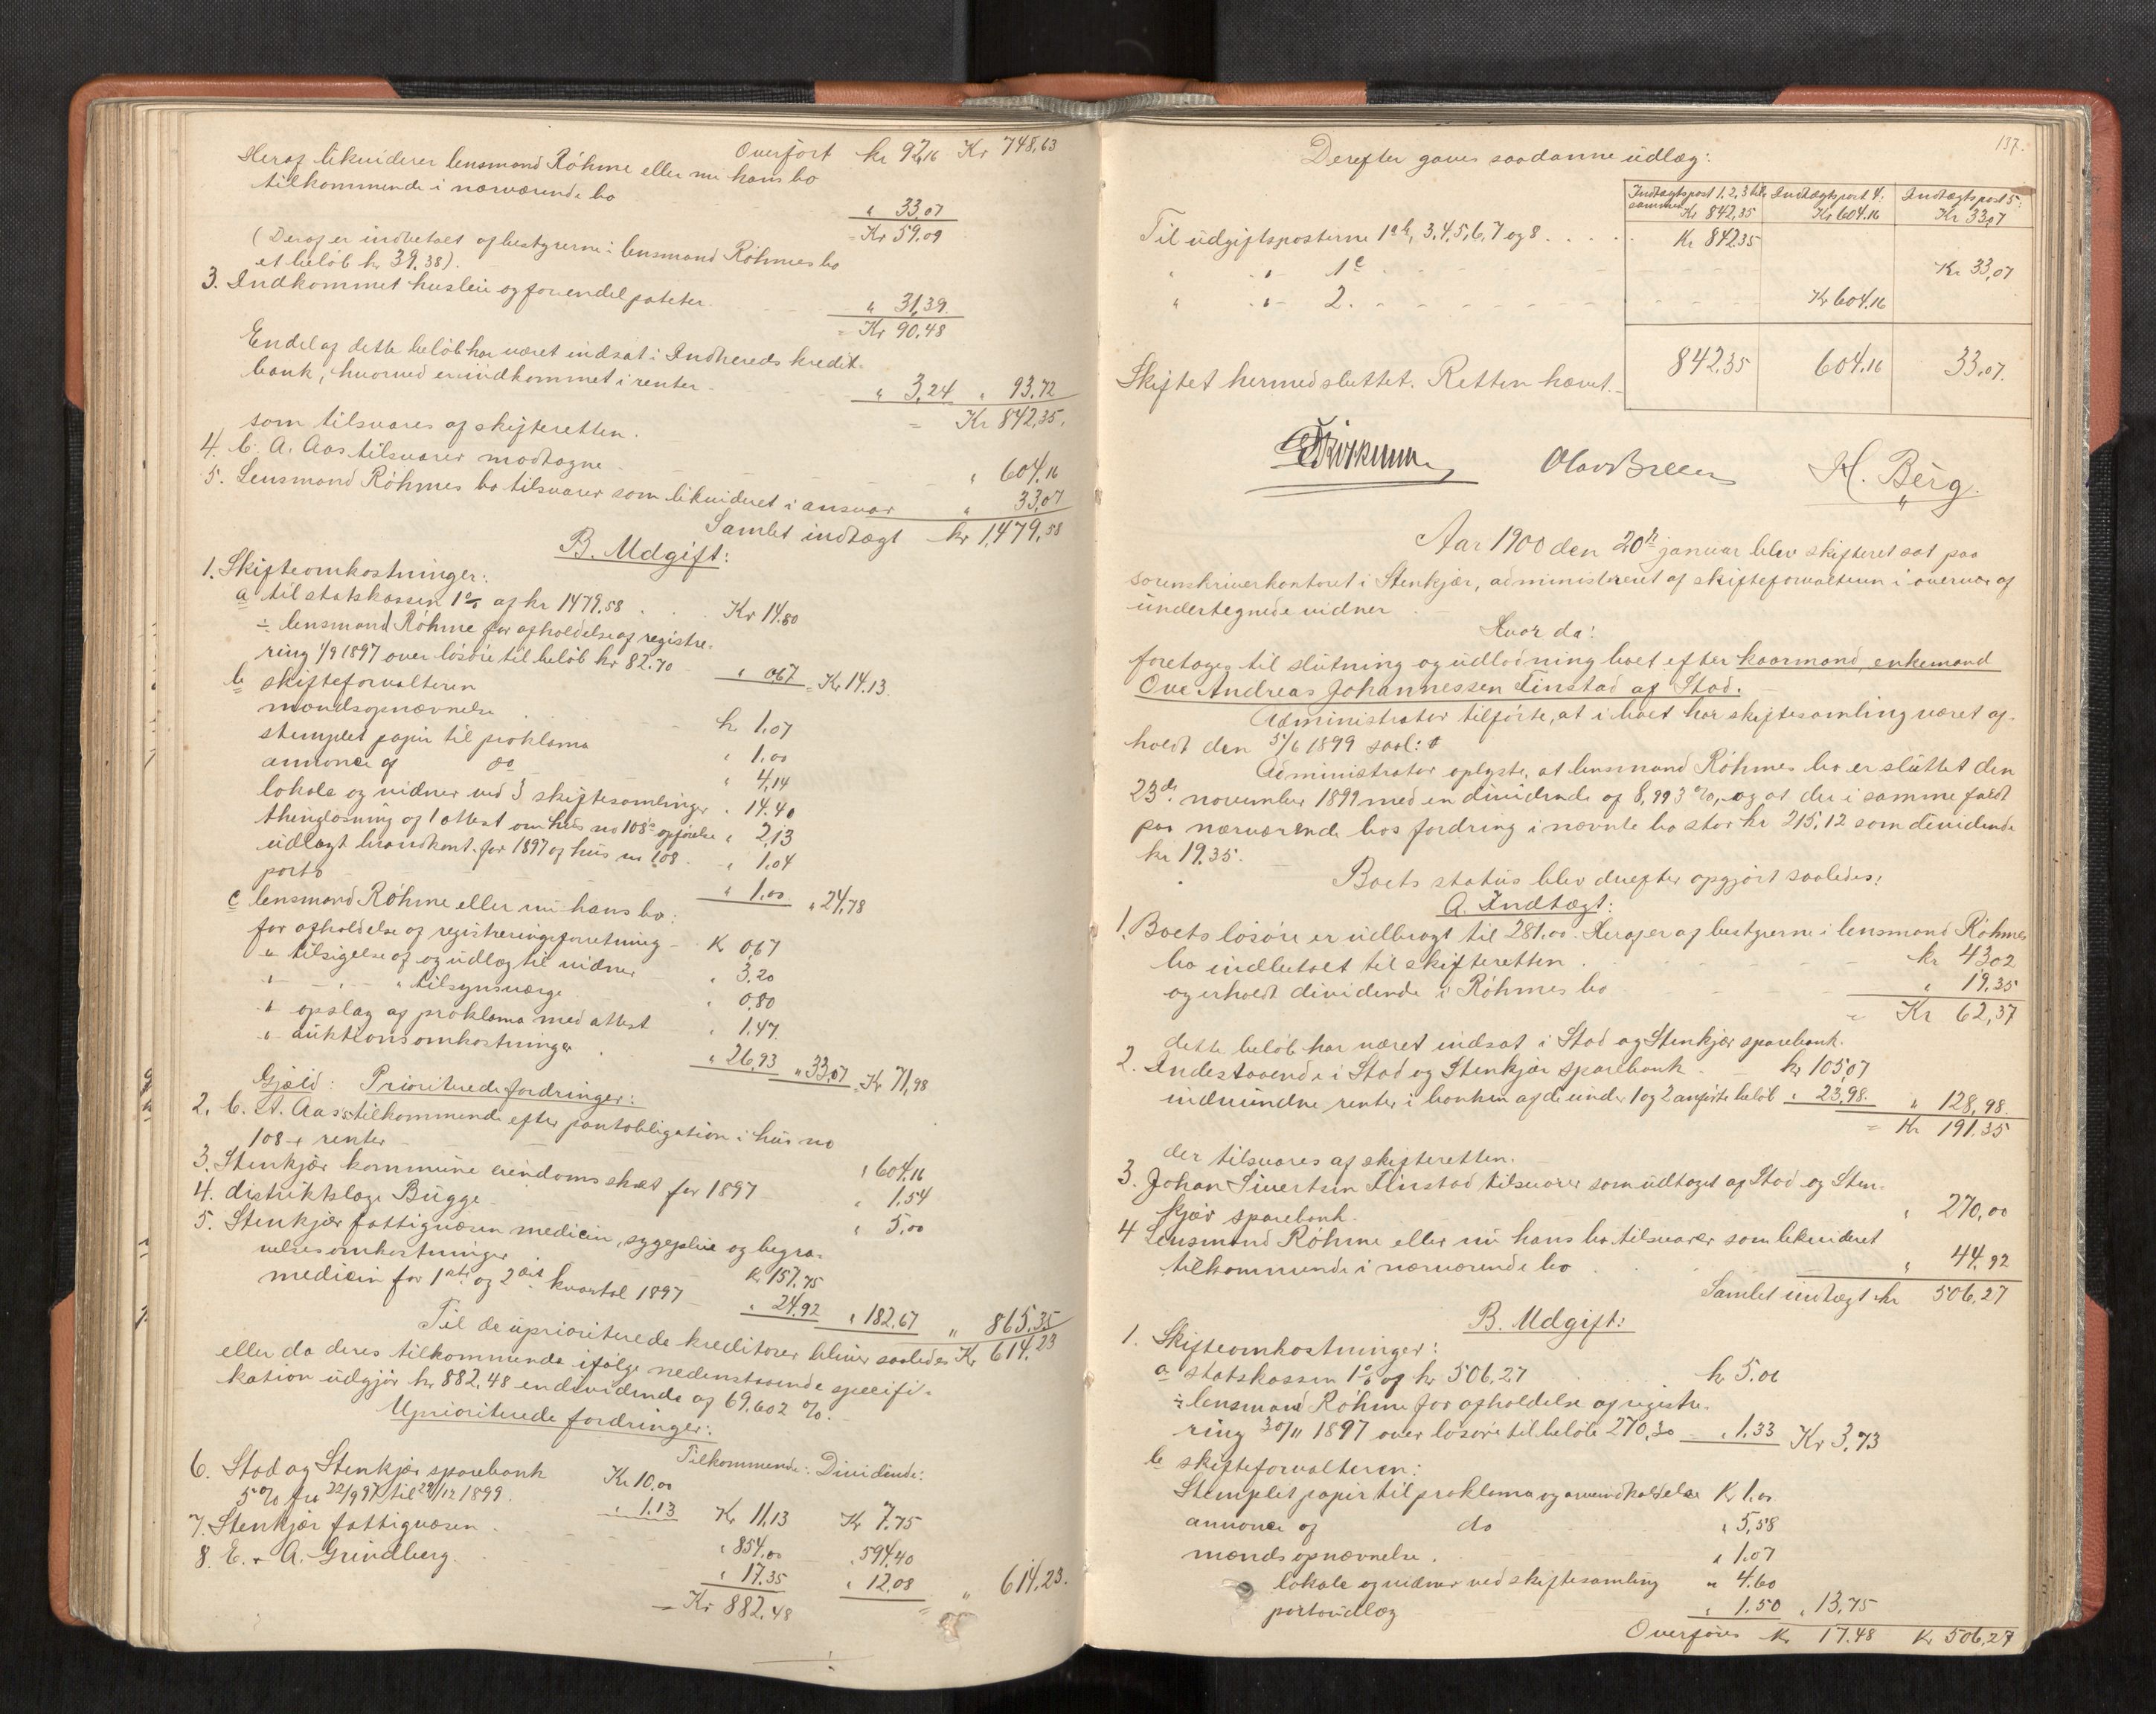 Overført kr 92,16 Kr 748,63
Heraf likviderer lensmand Röhme eller nu hans bo
tilkommende i nærværende bo " 33,07
= Kr 59.09
(Deraf er indbetalt af bestyrerne i lensmand Röhmes bo
et beløb kr 39,38).
3. Indkommet husleie og for en del poteter " 31,39.
= Kr 90.48
Endel af dette beløb har været indsat i Indhereds kredit-
bank, hvorved er indkommet i renter " 3,24 " 93.72
= Kr 842,35,
som tilsvares af skifteretten.
4. C. A. Aas tilsvarer modtagne " 604,16
5. Lensmand Röhmes bo tilsvarer som likvideret i ansvar " 33,07
Samlet indtægt kr 1479,58
B. Udgift:
1. Skifteomkostninger:
a til statskassen 1 % af kr 1479,58 Kr 14.80
÷ lensmand Röhme for afholdelse af registre-
ring 1/9 1897 over løsøre til beløb kr 82.70 " 0,67 = Kr 14.13.
b skifteforvalteren
mandsopnævnelse kr 1.07
stemplet papir til proklama " 1.00
annonce af do " 4,14
lokale og vidner ved 3 skiftesamlinger " 14.40
thinglæsning af 1 attest om hus no 108's opførelse " 2,13
udlagt brandkont. for 1897 af hus no 108 " 1.04
porto " 1.00 " 24,78
c lensmand Röhme eller nu hans bo:
for afholdelse af registreringsforretning Kr 0,67
" tilsigelse af og udlæg til vidner " 3.20
" " " tilsynsværge " 0,80
" opslag af proklama med attest " 1.47.
" auktionsomkostninger " 26,93 " 33,07 = Kr 71,98
Gjæld: Prioriterede fordringer:
2. C. A. Aas's tilkommende efter pantobligation i hus no
108 + renter " 604,16
3. Stenkjær kommune eiendomsskat for 1897 " 1,54
4. distriktslæge Bugge " 5,00
5. Stenkjær fattigvæsen medicin, sygepleie og begra-
velsesomkostninger Kr 157.75
medicin for 1ste og 2det kvartal 1897 " 24.92 " 182.67 " 865,35
Til de uprioriterede kreditorer bliver saaledes Kr 614,23
eller da deres tilkommende ifølge nedenstaaende specifi-
kation udgjør kr 882,48 en dividende af 69.602 %.
Uprioriterede fordringer:
Tilkommende: Dividende:
6. Stod og Stenkjær sparebank Kr 10.00
5% fra 22/9 97 til 29/12 1899. " 1.13 Kr 11,13 Kr 7.75
7. Stenkjær fattigvæsen " 854,00 " 594,40
8. E. & A. Grindberg. " 17.35 " 12,08 " 614,23.
= Kr 882.48
137.
Derefter gaves saadanne udlæg:
Indtægtspost 1, 2, 3 til-
sammen Kr 842,35
Indtægtspost 4:
Kr 604.16
Indtægtspost 5:
Kr 33,07
Til udgiftsposterne 1 a b, 3, 4, 5, 6, 7 og 8 Kr 842.35
" " 1 c Kr 33,07
" " 2. Kr 604.16
842.35 604,16 33,07.
Skiftet hermed sluttet. Retten hævet.
H. Berg.
Aar 1900 den 20de januar blev skifteret sat paa
sorenskriverkontoret i Stenkjær, administreret af skifteforvalteren i overvær af
undertegnede vidner
Hvor da:
foretoges til slutning og udlodning boet efter kaarmand, enkemand
Ove Andreas Johannessen Finstad af Stod.
Administrator tilførte, at i boet har skiftesamling været af-
holdt den 5/6 1899
Administrator oplyste, at lensmand Röhmes bo er sluttet den
23de november 1899 med en dividende af 8,993 %, og at der i samme faldt
paa nærværende bos fordring i nævnte bo stor kr 215,12 som dividende
kr 19.35.
Boets status blev derefter opgjort saaledes:
A. Indtægt:
1. Boets løsøre er udbragt til 281,00. Heraf er af bestyrerne i lensmand Röhmes
bo indbetalt til skifteretten kr 43,02
og erholdt dividende i Röhmes bo " 19,35
= Kr 62,37
dette beløb har været indsat i Stod og Stenkjær sparebank.
2. Indestaaende i Stod og Stenkjær sparebank kr 105,07
indvundne renter i banken af de under 1 og 2 anførte beløb " 23,98. " 128,98.
= Kr 191.35
der tilsvares af skifteretten.
3. Johan Sivertsen Finstad tilsvarer som udtaget af Stod og Sten-
kjær sparebank. " 270,00
4 Lensmand Röhme eller nu hans bo tilsvarer som likvideret
tilkommende i nærværende bo " 44,92
Samlet indtægt kr 506,27
B. Udgift:
1. Skifteomkostninger:
a statskassen 1 % af kr 506,27 kr 5.06
÷ lensmand Röhme for afholdelse af registre-
ring 30/11 1897 over løsøre til beløb 270,30 " 1.33 Kr 3,73
b skifteforvalteren:
Stemplet papir til proklama og Kr 1.00
annonce af do " 5,58
mandsopnævnelse. " 1.07
lokale og vidner ved skiftesamling " 4.60
portoudlæg " 1.50 " 13,75
Overføres Kr 17.48 Kr 506,27